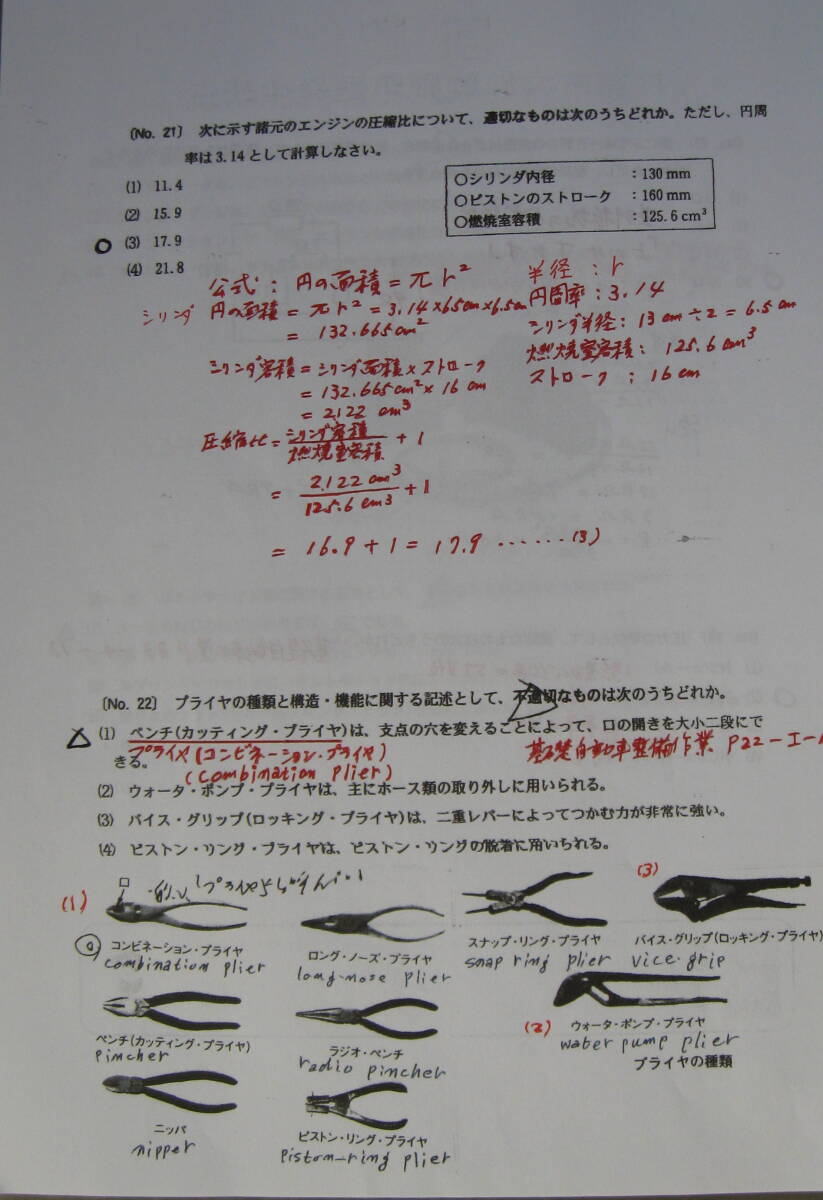 〔No. 21〕 次に示す諸元のエンジンの圧縮比について、適切なものは次のうちどれか。ただし、円周
率は3.14として計算しなさい。
(1) 11.4
(2) 15.9
(3) 17.9
(4) 21.8
○シリンダ内径 : 130 mm
○ピストンのストローク : 160 mm
○燃焼室容積 : 125.6 cm³
公式: 円の面積 = πr²
シリンダ 円の面積 = πr² = 3.14×6.5cm×6.5cm
= 132.665cm²
シリンダ容積 = シリンダ面積×ストローク
= 132.665cm²×16cm
= 2122 cm³
圧縮比 = シリンダ容積/燃焼室容積 + 1
= 2122cm³/125.6cm³ + 1
= 16.9 + 1 = 17.9 ‥‥‥(3)
半径 : r
円周率 : 3.14
シリンダ半径: 13cm÷2 = 6.5cm
燃焼室容積: 125.6cm³
ストローク : 16cm
〔No. 22〕 プライヤの種類と構造・機能に関する記述として、不適切なものは次のうちどれか。
(1) ペンチ(カッティング・プライヤ)は、支点の穴を変えることによって、口の開きを大小二段にで
きる。
プライヤ(コンビネーション・プライヤ)
(combination plier)
基礎自動車整備作業 P22-I-1
(2) ウォータ・ポンプ・プライヤは、主にホース類の取り外しに用いられる。
(3) バイス・グリップ(ロッキング・プライヤ)は、二重レバーによってつかむ力が非常に強い。
(4) ピストン・リング・プライヤは、ピストン・リングの脱着に用いられる。
(1)
口
コンビネーション・プライヤ
combination plier
ロング・ノーズ・プライヤ
long-nose plier
スナップ・リング・プライヤ
snap ring plier
(3)
バイス・グリップ(ロッキング・プライヤ)
vice-grip
ペンチ(カッティング・プライヤ)
pincher
ラジオ・ペンチ
radio pincher
(2) ウォータ・ポンプ・プライヤ
water pump plier
プライヤの種類
ニッパ
nipper
ピストン・リング・プライヤ
piston-ring plier